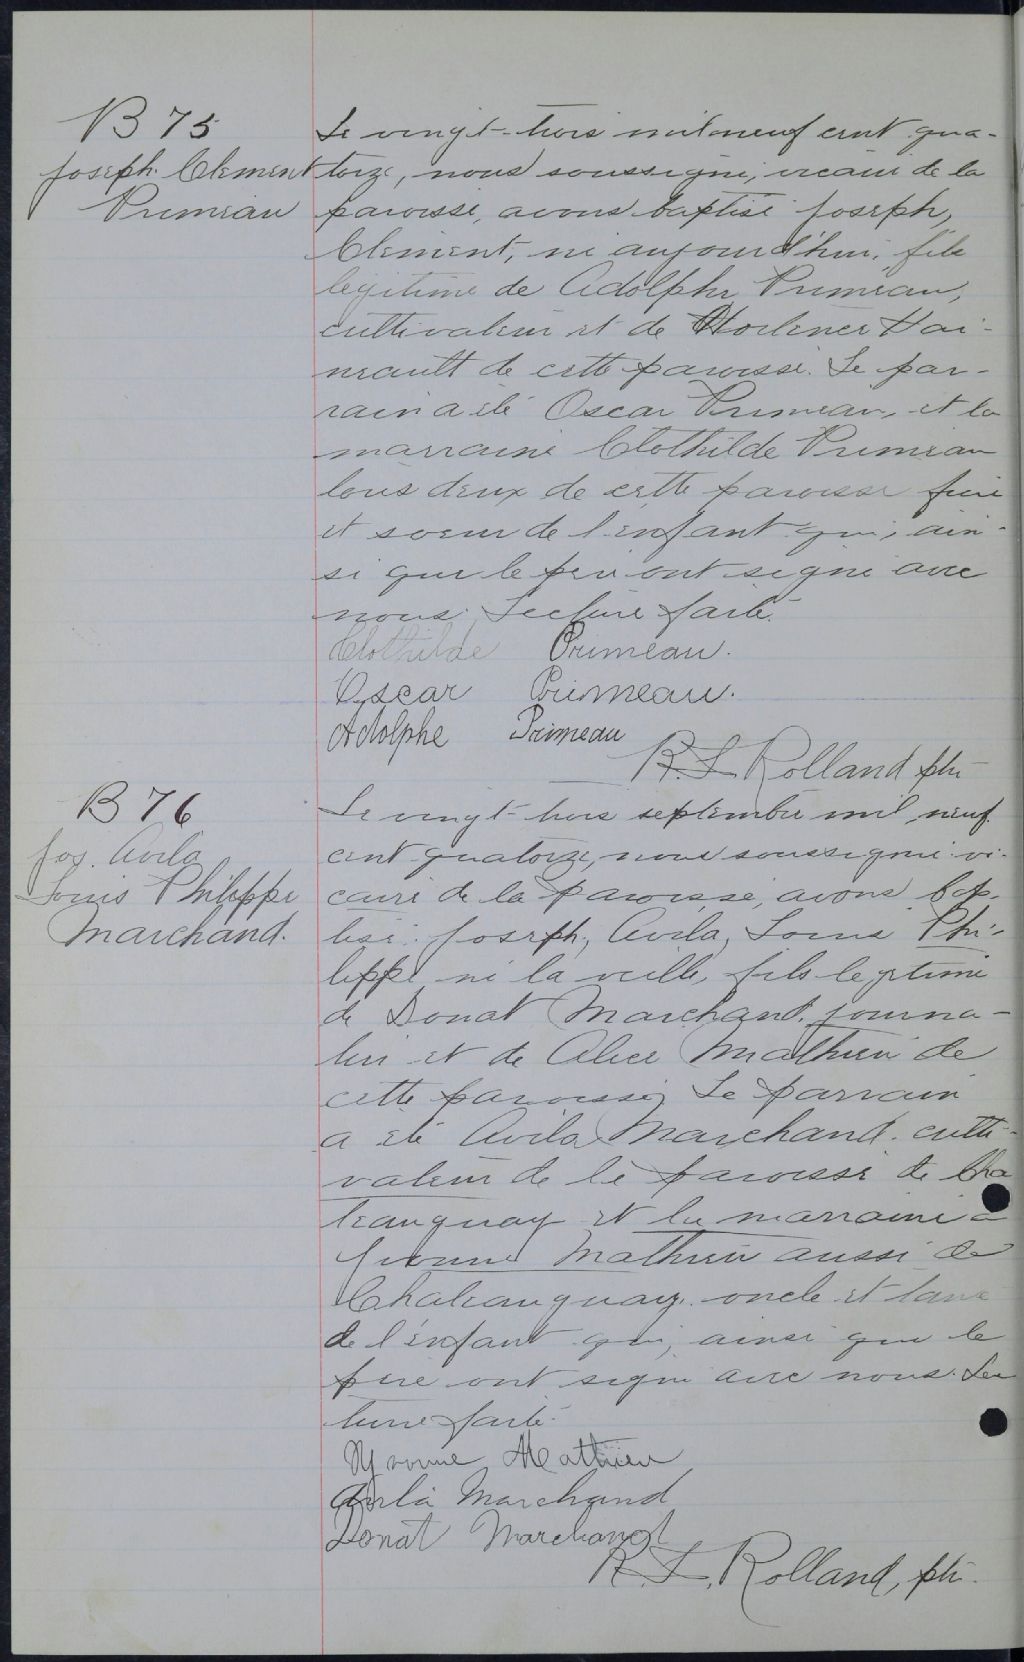 B 75
Joseph Clement
Primeau
Le vingt-trois mil neuf cent qua-
torze, nous soussigné, vicaire de la
paroisse, avons baptisé Joseph,
Clement, né aujourd'hui, fils
légitime de Adolphe Primeau,
cultivateur et de
de cette paroisse. Le par-
rain a été Oscar Primeau, et la
marraine Clothilde Primeau
tous deux de cette paroisse frère
et soeur de l'enfant qui, ain-
si que le père ont signé avec
nous. Lecture faite.
Clothilde Primeau.
Oscar Primeau.
Adolphe Primeau
R. L. Rolland ptr
B 76
Jos. Avila
Louis Philippe
Marchand.
Le vingt-trois septembre mil neuf
cent quatorze, nous soussigné vi-
caire de la paroisse, avons bap-
tisé Joseph, Avila, Louis Phi-
lippe né la veille, fils légitime
de Donat Marchand, journa-
lier et de Alice Mathieu de
cette paroisse. Le parrain
a été Avila Marchand culti-
vateur de la paroisse de Cha
teauguay et la marraine a
Yvonne Mathieu aussi de
Chateauguay oncle et tante
de l'enfant qui, ainsi que le
père ont signé avec nous. Lec
ture faite.
Yvonne Mathieu
Avila Marchand
Donat Marchand
R. L. Rolland, ptr.